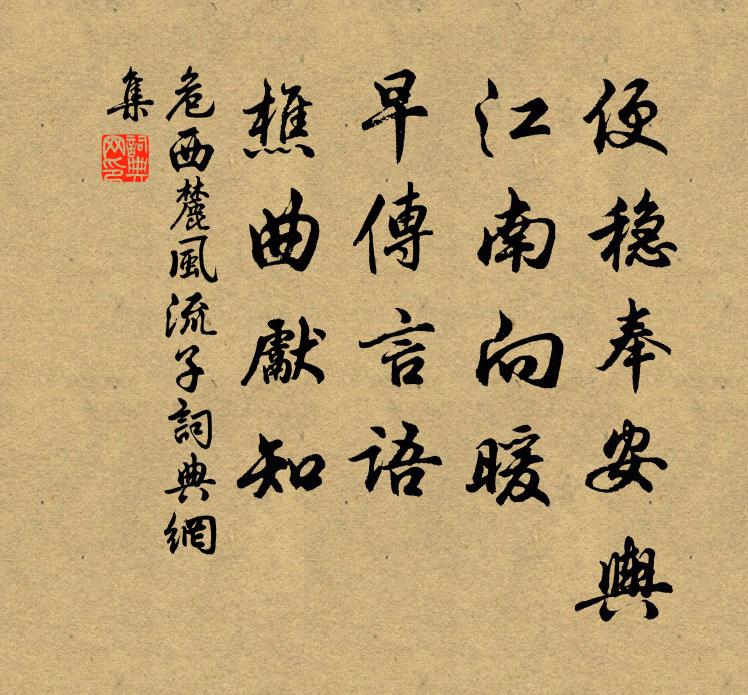 便稳奉安輿
江南向暖
早傳言語
樵曲獻知
危西麓風流子詞典網
集
詞典
网印